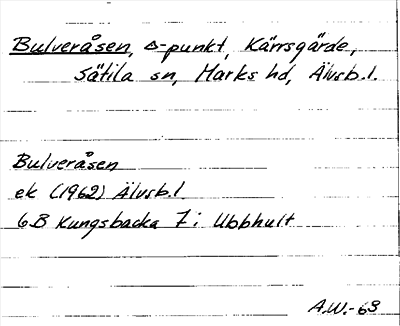 Bulveråsen, △-punkt, Kärrsgärde,
Sätila sn, Marks hd, Älvsb.l.
Bulveråsen
ek (1962) Älvsb.l.
6B Kungsbacka 7i Ubbhult
A.W.-63